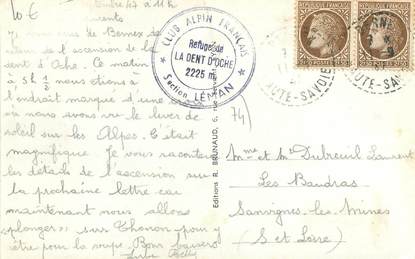 10 €
CLUB ALPIN FRANÇAIS
Refuge de
LA DENT D'OCHE
2225 m.
Section LÉMAN
REPUBLIQUE FRANÇAISE
REPUBLIQUE FRANÇAISE
HAUTE-SAVOIE
HAUTE-SAVOIE
de Bernex
de l'ascension de la
dent d'Oche. Ce matin
à 5h 1/2 nous étions à
l'endroit marqué d'une
où nous avons vu le lever de
soleil sur les Alpes. C'était
magnifique. Je vous raconterai
les détails de l'ascension sur
la prochaine lettre car
maintenant nous allons
"plonger" sur Thonon pour y
être pour la soupe. Bons baisers
74)
Editions R. BRUNAUD, 6, rue
Mme et Mr Dubreuil Laurent
Les Baudras
Sanvignes-les-Mines
(S et Loire)